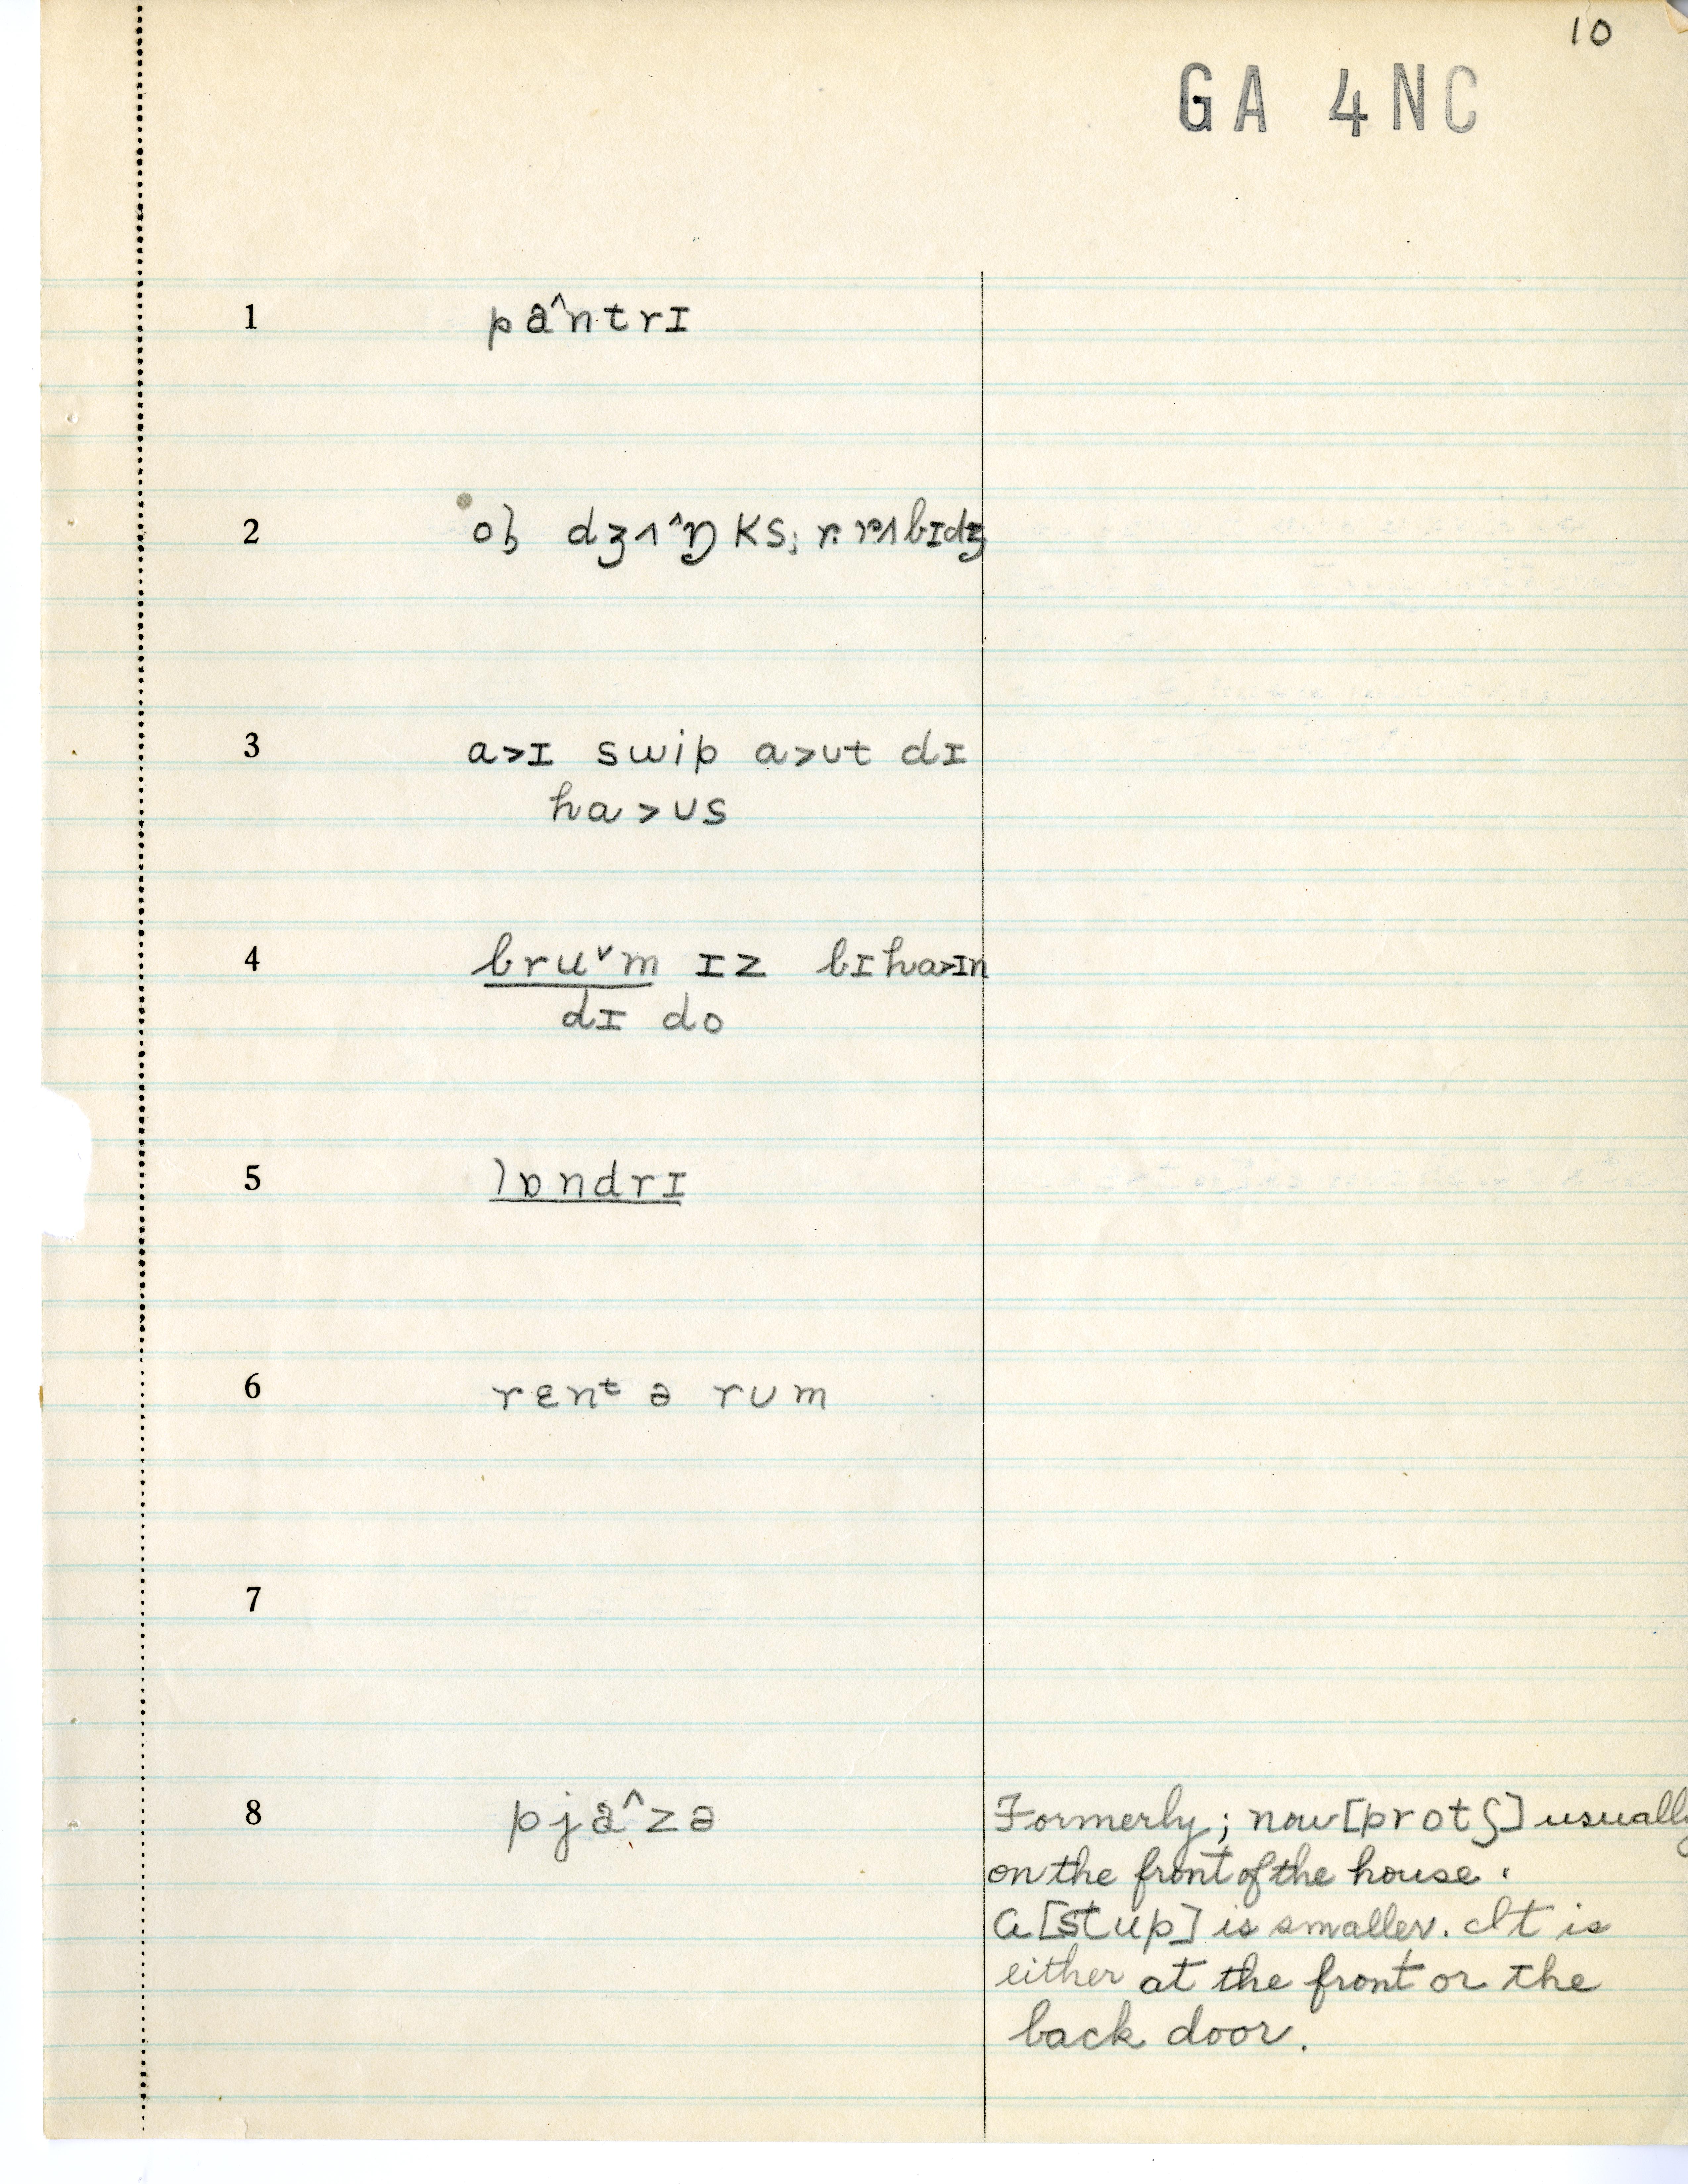 10
GA 4NC
1 pa^ntrɪ
2 dʒʌ^ŋks; r. rʌbɪdʒ
3 a>ɪ swip a>ut dɪ
ha>ʊs
4 bruˇm ɪz bɪha>ɪn
dɪ do
5 lɒndrɪ
6 rɛnᵗ ə rum
7
8 pja^zə Formerly; now [protʃ] usually
on the front of the house.
a [stup] is smaller. It is
either at the front or the
back door.